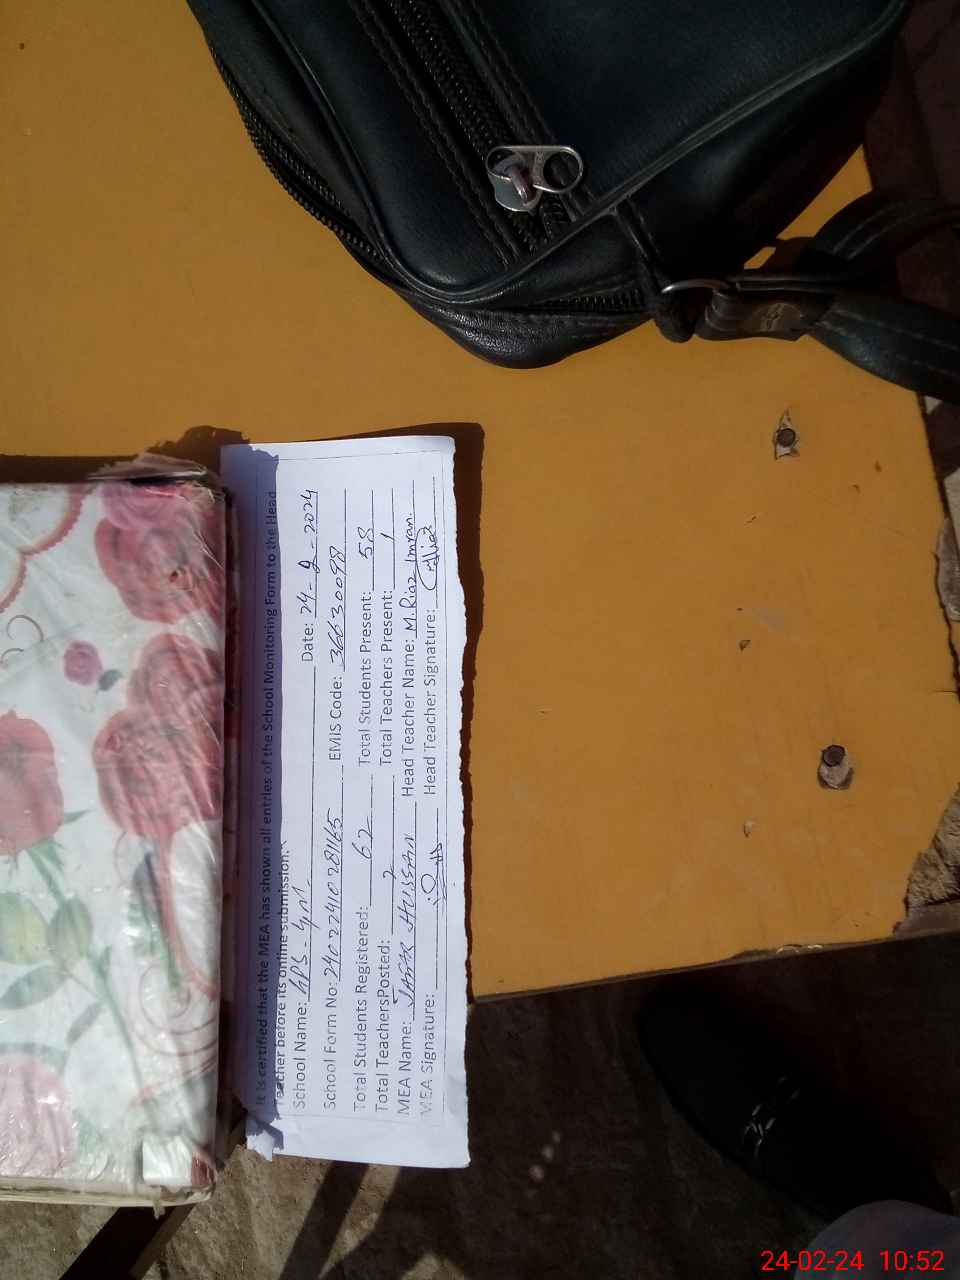 It is certified that the MEA has shown all entries of the School Monitoring Form to the Head
Teacher before its online submission.
School Name: GPS - 4/11. Date: 24 - 2 - 2024
School Form No: 2402241028165 EMIS Code: 36630098
Total Students Registered: 62 Total Students Present: 58
Total TeachersPosted: 2 Total Teachers Present: 1
MEA Name: JAFFAR HUSSAIN Head Teacher Name: M. Riaz Imran.
MEA Signature: Head Teacher Signature:
24-02-24 10:52